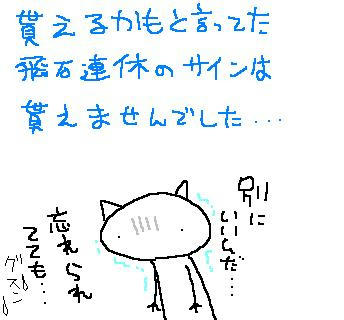 貰えるかもと言ってた
飛石連休のサインは
貰えませんでした・・・
別に
いいんだ…
忘れられ
てても…
グスン